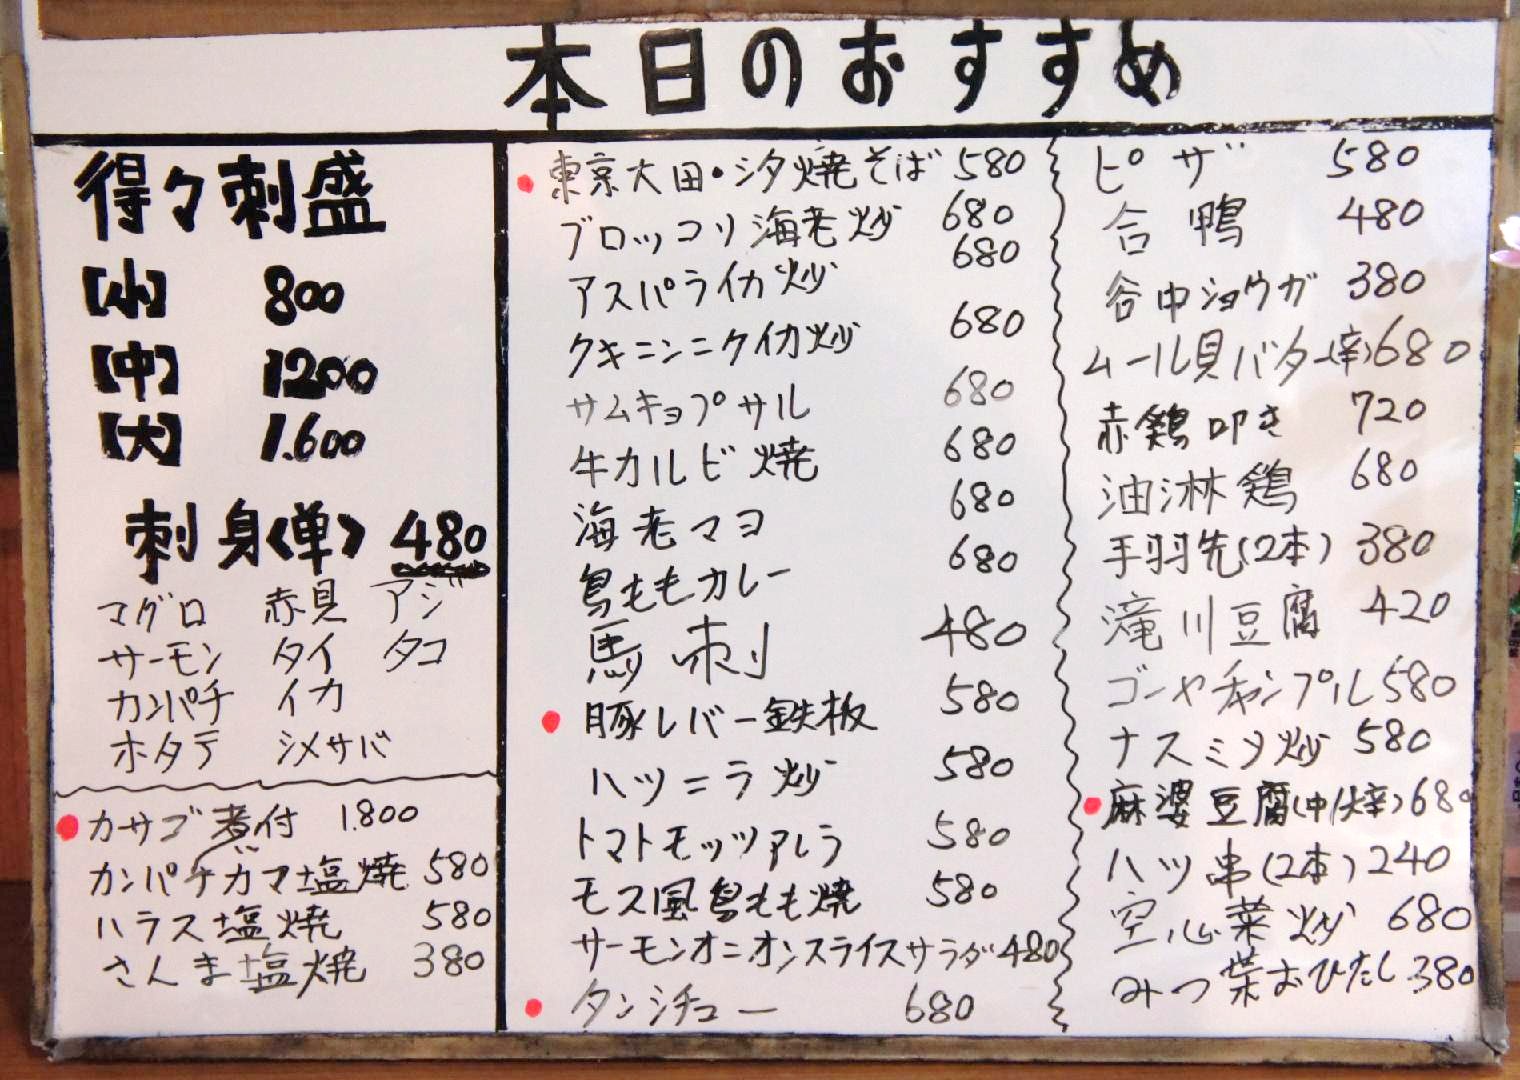 本日のおすすめ
得々刺盛
【小】 800
【中】 1200
【大】 1.600
刺身〈単〉 480
マグロ 赤貝 アジ
サーモン タイ タコ
カンパチ イカ
ホタテ シメサバ
カサゴ煮付 1.800
カンパチガマ塩焼 580
ハラス塩焼 580
さんま塩焼 380
東京大田・シタ焼そば 580
ブロッコリ海老炒 680
アスパライカ炒 680
クキニンニクイカ炒 680
サムギョプサル 680
牛カルビ焼 680
海老マヨ 680
鳥ももカレー 680
馬刺 480
豚レバー鉄板 580
ハツニラ炒 580
トマトモッツアレラ 580
モス風鳥もも焼 580
サーモンオニオンスライスサラダ 480
タンシチュー 680
ピザ 580
合鴨 480
谷中ショウガ 380
ムール貝バター(辛) 680
赤鶏叩き 720
油淋鶏 680
手羽先(2本) 380
滝川豆腐 420
ゴーヤチャンプル 580
ナスミソ炒 580
麻婆豆腐(中辛) 680
ハツ串(2本) 240
空心菜炒 680
みつ葉おひたし 380